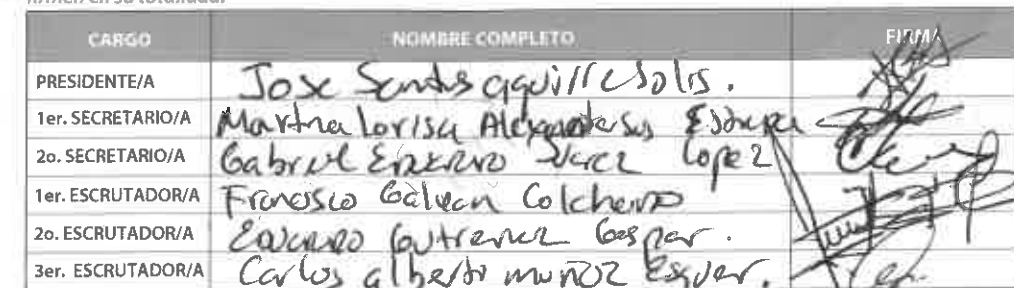 CARGO NOMBRE COMPLETO FIRMA
PRESIDENTE/A Jose Santos aguille Solis.
1er. SECRETARIO/A Martha Lorisa
2o. SECRETARIO/A Gabriel Lopez
1er. ESCRUTADOR/A Francisco Galvan Colchero
2o. ESCRUTADOR/A Eduardo Gutierrez Gaspar.
3er. ESCRUTADOR/A Carlos alberto muñoz Esquer.